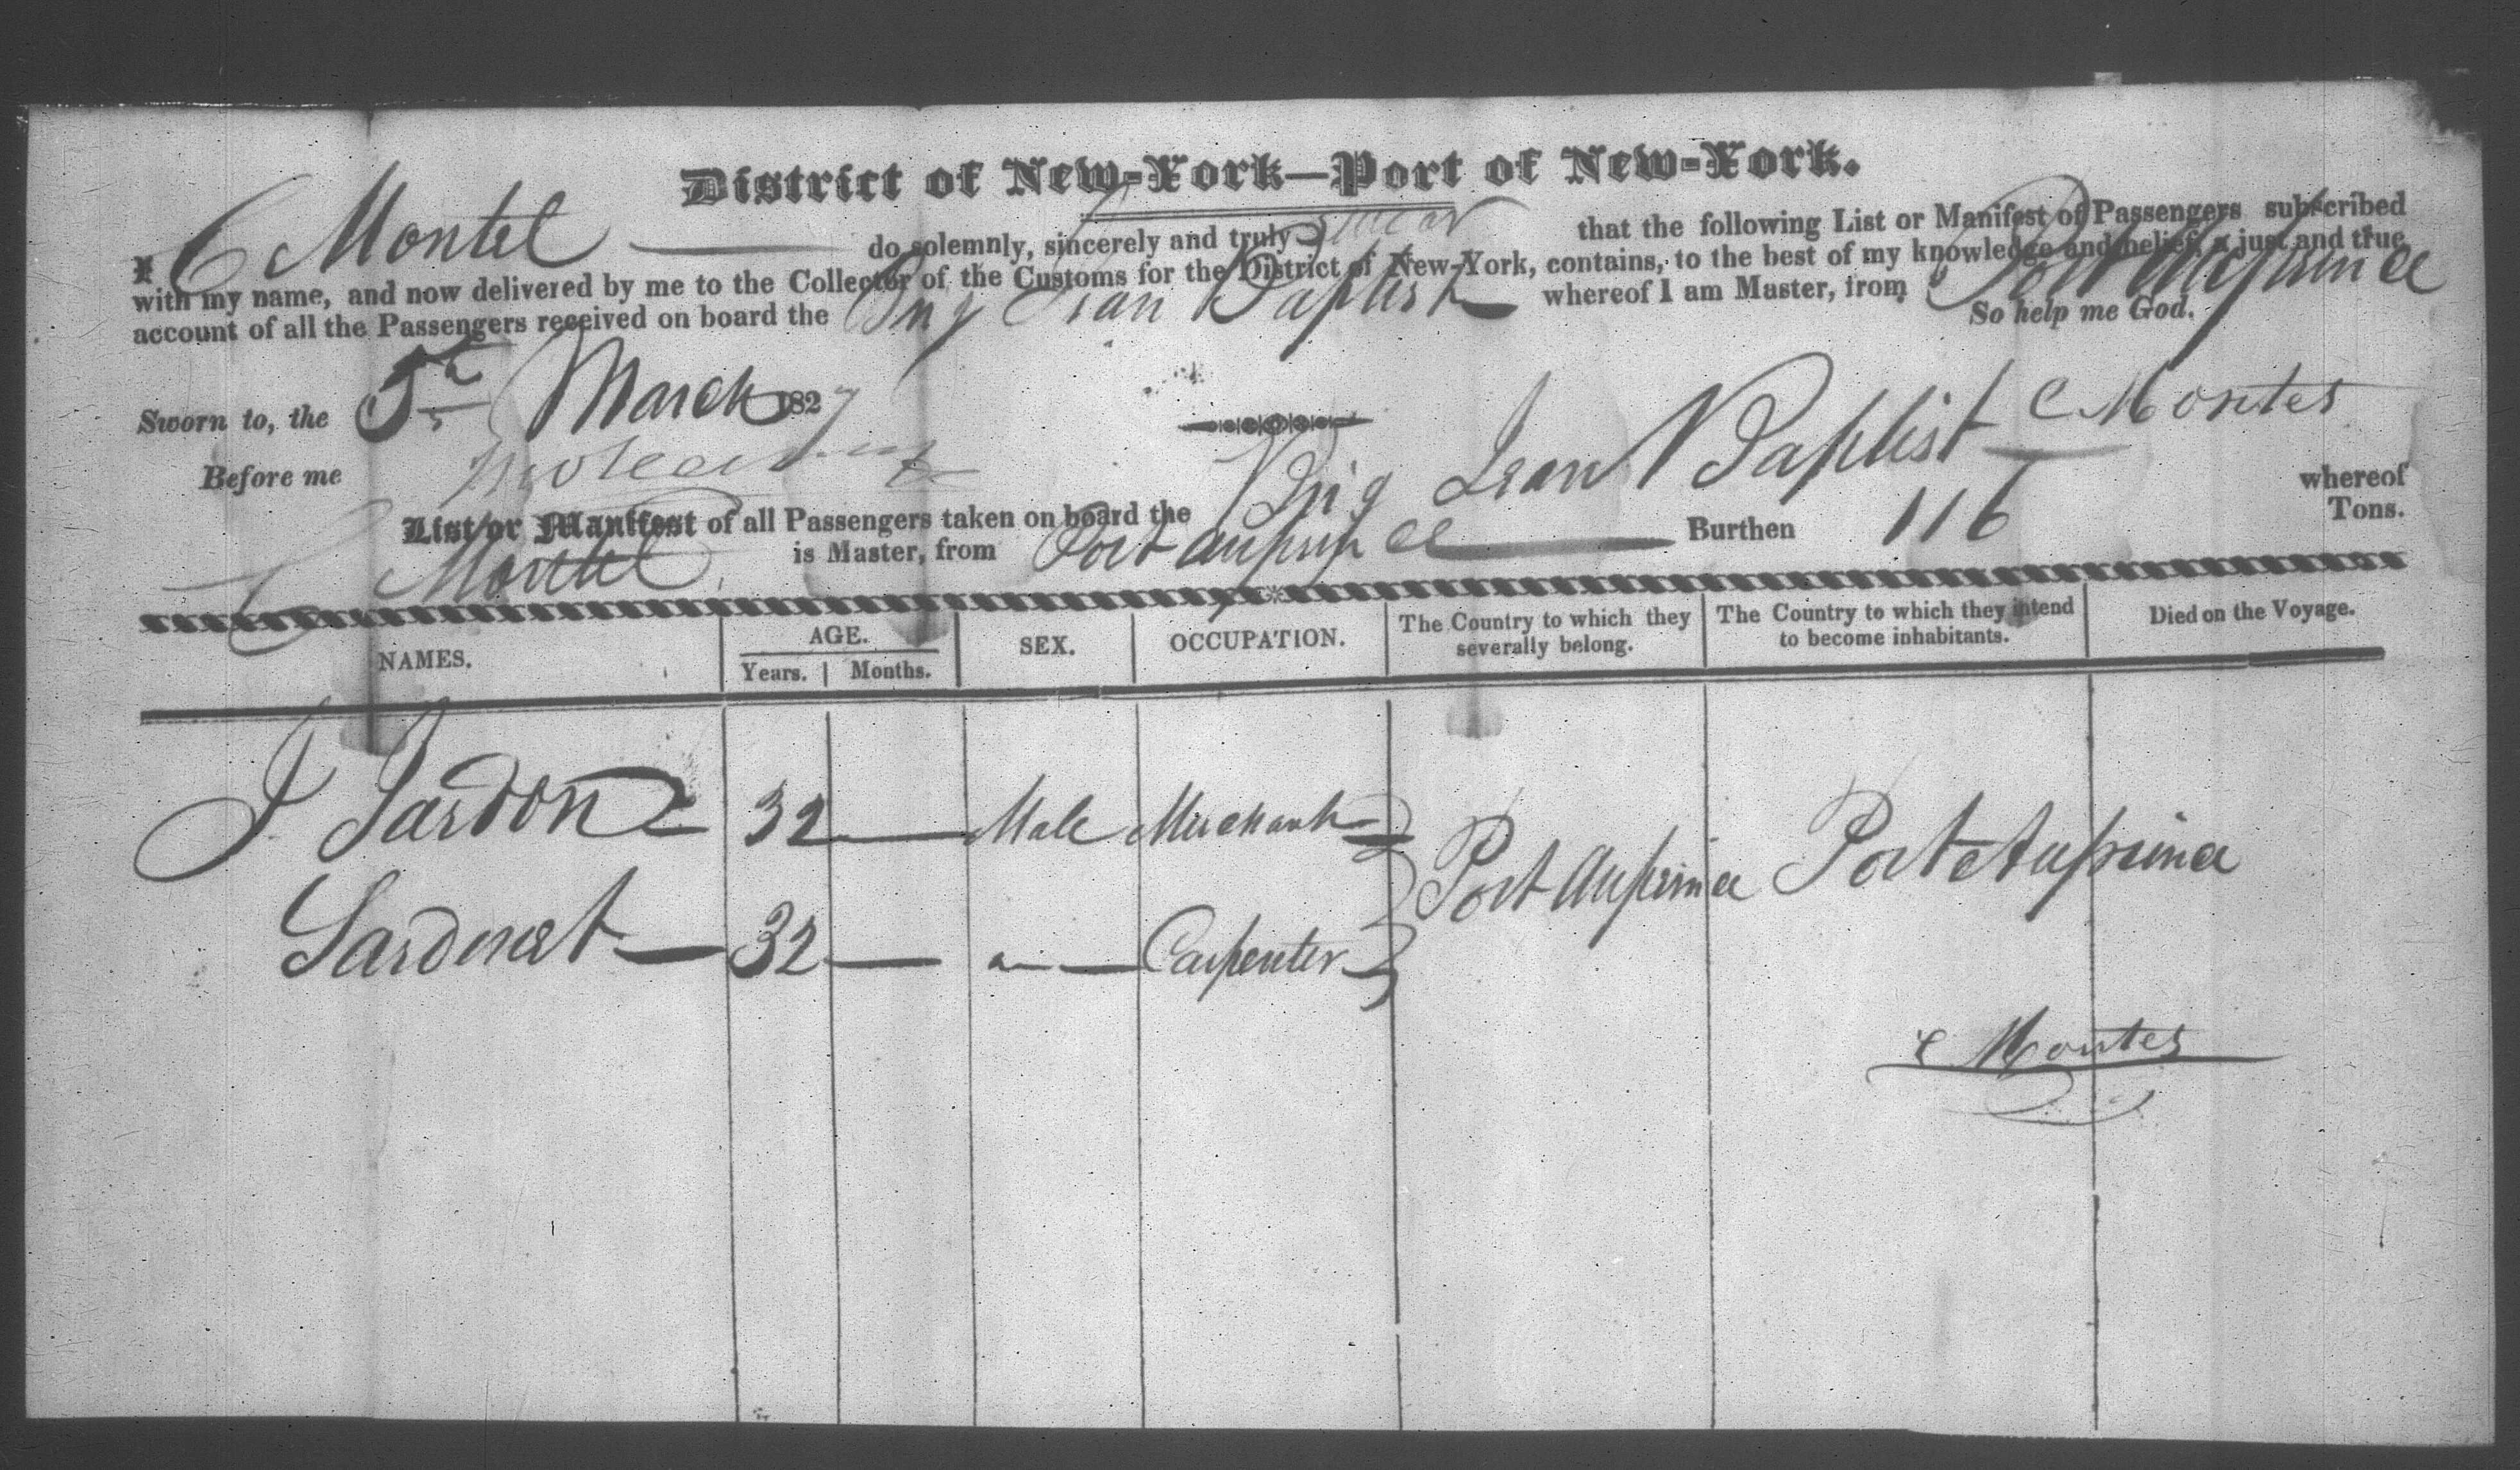 District of New-York—Port of New-York.
I C Montel do solemnly, sincerely and truly swear that the following List or Manifest of Passengers subscribed
with my name, and now delivered by me to the Collector of the Customs for the District of New-York, contains, to the best of my knowledge and belief, a just and true
account of all the Passengers received on board the Brig Jean Baptist whereof I am Master, from Port Auprince
So help me God.
Sworn to, the 5th March 1827
C Montes
Before me
List or Manifest of all Passengers taken on board the Brig Jean Baptist whereof
C Montel is Master, from Port auprince Burthen 116 Tons.
NAMES. AGE. SEX. OCCUPATION. The Country to which they severally belong. The Country to which they intend to become inhabitants. Died on the Voyage.
Years. Months.
J Jardon 32 — Male Merchant
Port Auprince Port Auprince
32 — Carpenter
C Montes